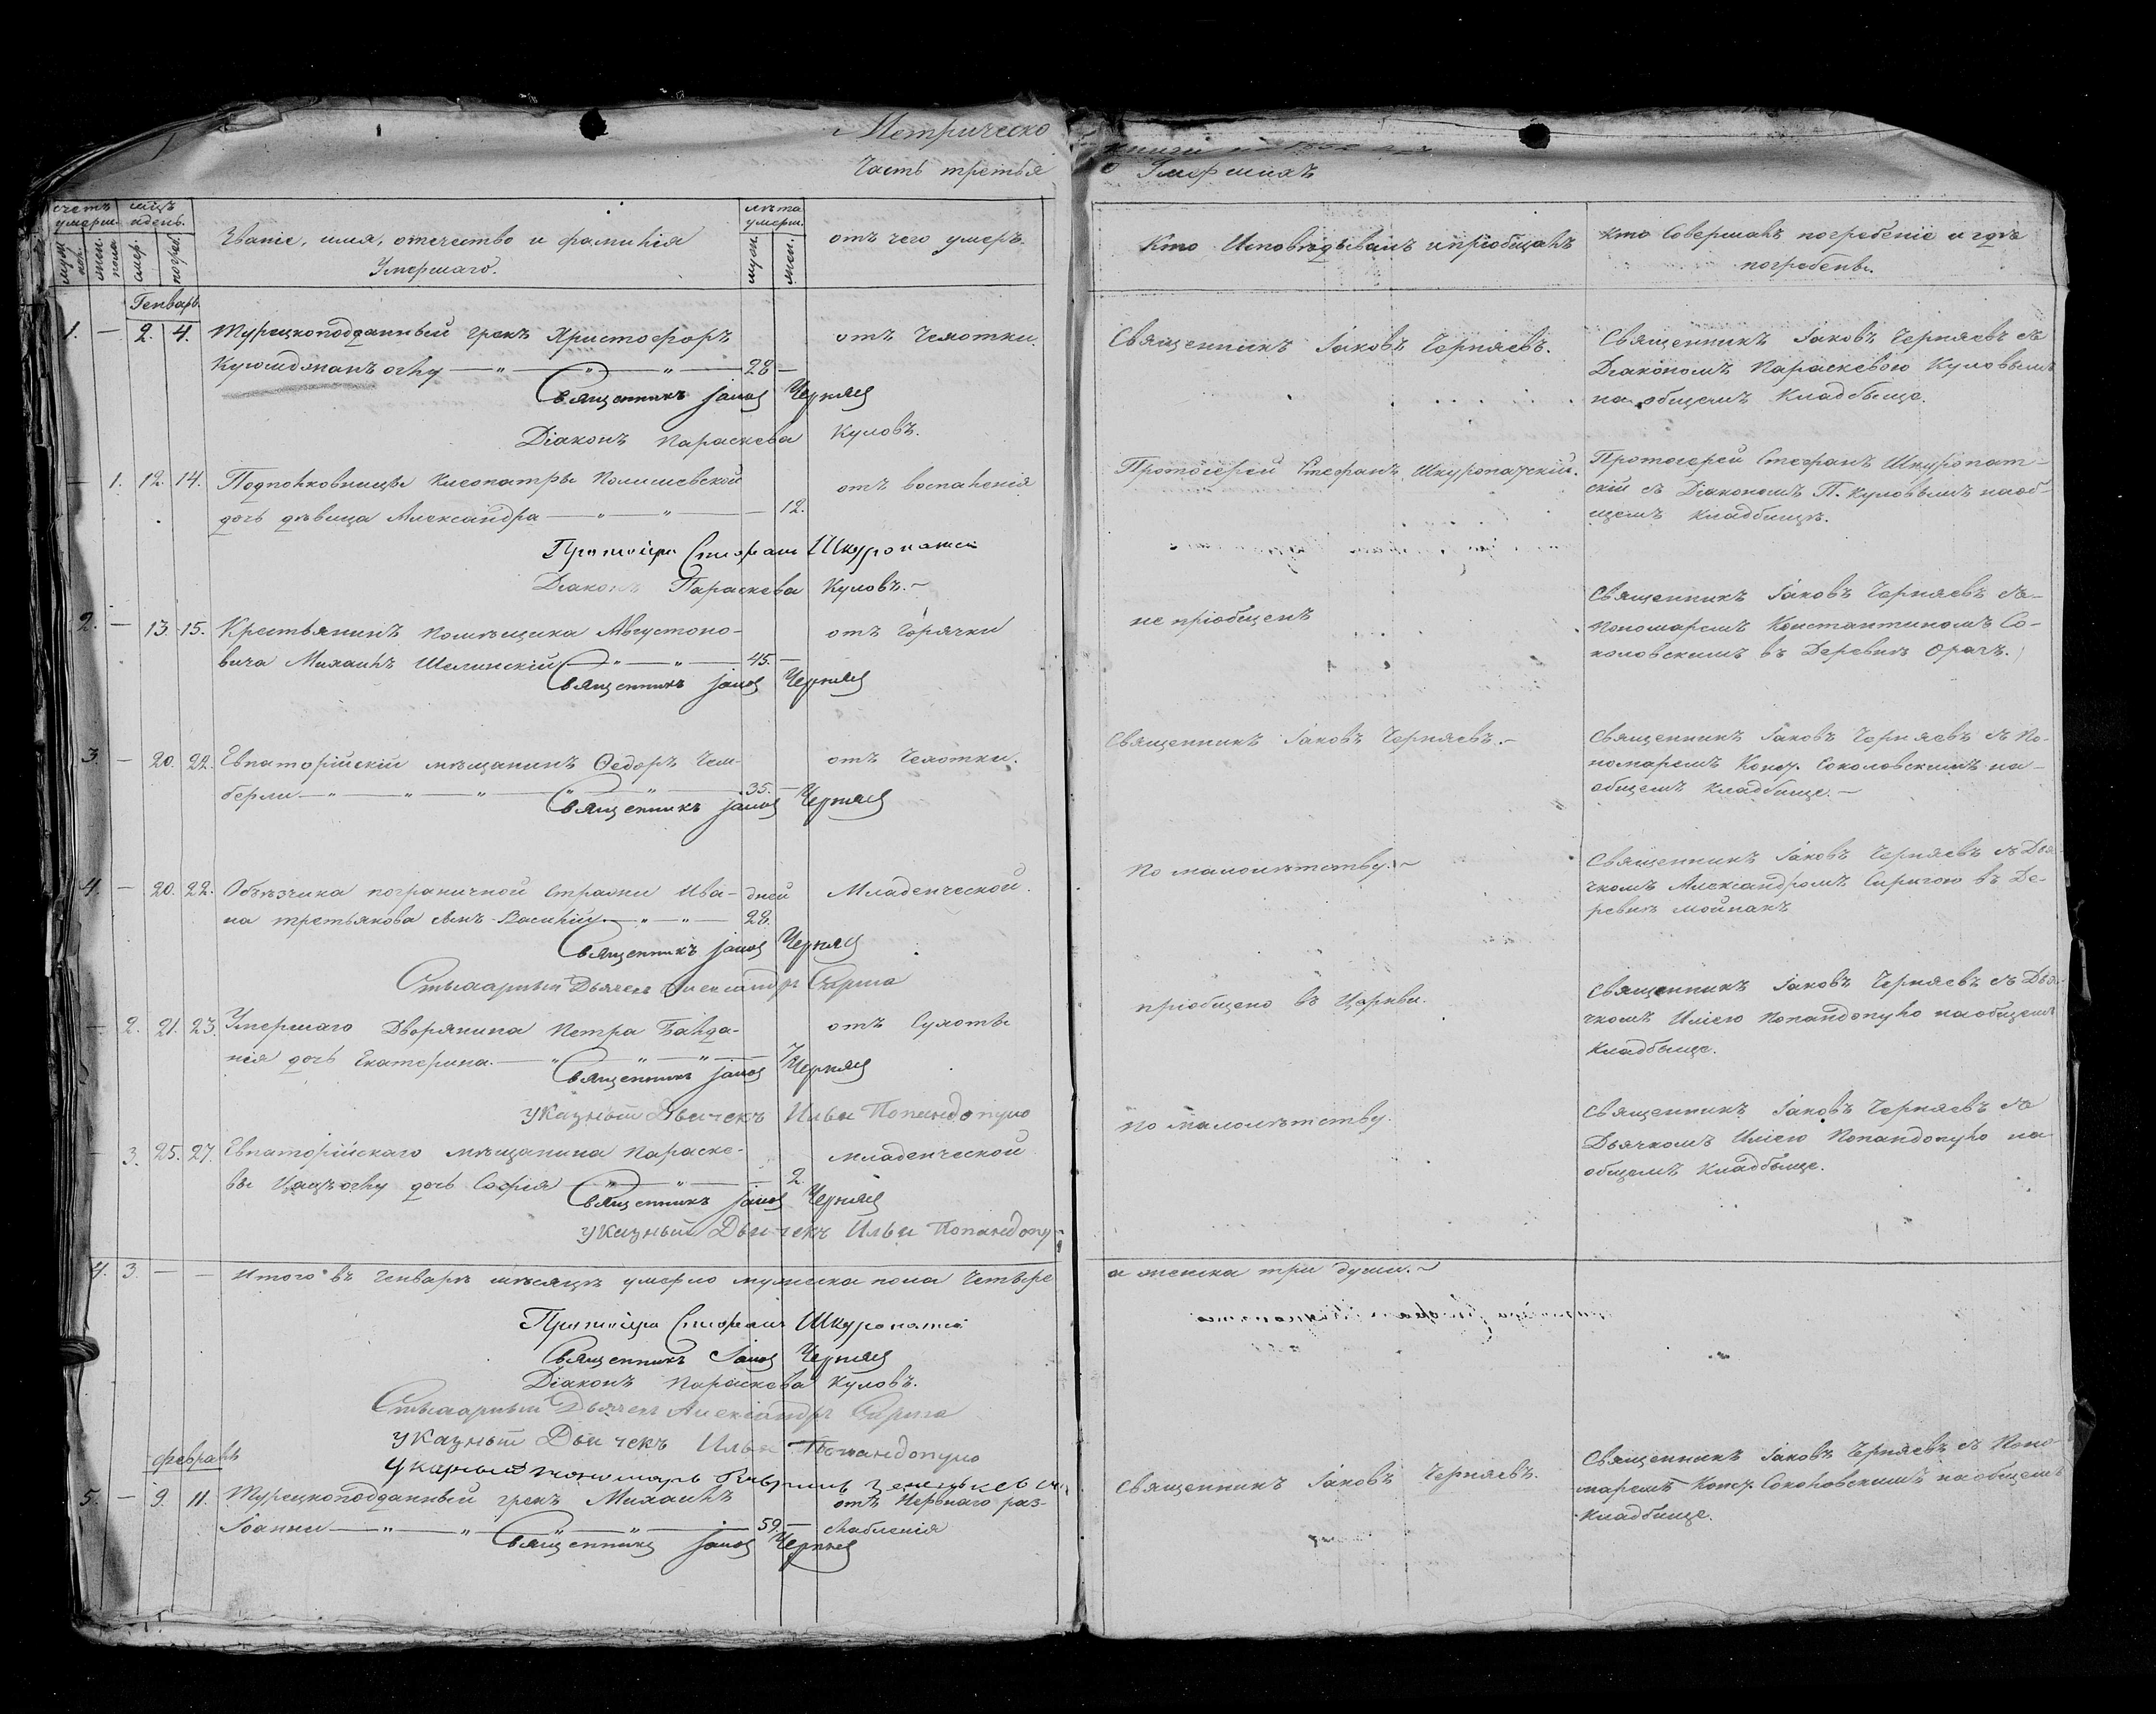 Метрическо
Часть третья
счетъ умерш.
мцъ и день.
муж. пол.
жен. пола
смер.
погреб.
Званіе, имя, отечество и фамилія
Умершаго.
лѣта умерш.
муж.
жен.
отъ чего умеръ.
Генварь
1. — 2. 4. Турецкоподданный грекъ Христофоръ отъ Чахотки.
28 —
Священникъ Іаковъ Черняев
Діаконъ Параскева Куловъ.
— 1. 12. 14. Подполковницы Клеопатры отъ воспаленія
дочь дѣвица Александра — 12.
Протоіерей Стефанъ Шкуропатскій
Діаконъ Параскева Куловъ.
2. — 13. 15. Крестьянинъ помѣщика Августоно-
вича Михаилъ Шелинскій 45. — отъ горячки
Священникъ Іаковъ Черняев
3. — 20. 22. Евпаторійскій мѣщанинъ Ѳедоръ Чем- отъ Чахотки.
берли 35. —
Священникъ Іаковъ Черняев
4. — 20. 22. Объѣзчика пограничной стражи Ива- дней Младенческой.
на Третьякова сынъ Василій 28.
Священникъ Іаковъ Черняев
Дьячекъ Александръ
— 2. 21. 23. Умершаго Дворянина Петра Банда- отъ Сухоты
нія дочь Екатерина. 7.
Священникъ Іаковъ Черняев
Указный Дьячекъ Илья Попандопуло
— 3. 25. 27. Евпаторійскаго мѣщанина Параске- младенческой
вы дочь Софія 2.
Священникъ Іаковъ Черняев
Указный Дьячекъ Илья Попандопу
4. 3. — — Итого въ Генварѣ мѣсяцѣ умерло мужеска пола Четыре
Протоіерей Стефанъ Шкуропатскій
Священникъ Іаковъ Черняев
Діаконъ Параскева Куловъ.
Дьячекъ Александръ
Указный Дьячекъ Илья Попандопуло
Указный пономарь
Февраль
5. — 9. 11. Турецкоподданный грекъ Михаилъ отъ Нервнаго раз-
Іоанни 59. — слабленія
Священникъ Іаковъ Черняев
книги
о Умершихъ
Кто Исповѣдывалъ и пріобщалъ
Кто Совершалъ погребеніе и гдѣ
погребены.
Священникъ Іаковъ Черняевъ.
Священникъ Іаковъ Черняевъ съ
Діакономъ Параскевою Куловымъ
на общемъ Кладбище.
Протоіерей Стефанъ Шкуропатскій.
Протоіерей Стефанъ Шкуропат-
скій съ Діакономъ П. Куловымъ на об-
щемъ Кладбищѣ.
не пріобщенъ
Священникъ Іаковъ Черняевъ съ
Пономаремъ Константиномъ Со-
коловскимъ въ Деревнѣ Орагъ.
Священникъ Іаковъ Черняевъ.
Священникъ Іаковъ Черняевъ съ По-
номаремъ Конст. Соколовскимъ на
общемъ Кладбище.
По малолѣтству.
Священникъ Іаковъ Черняевъ съ Дья-
чкомъ Александромъ Сиригою въ Де-
ревнѣ Мойнакъ
пріобщено въ Церкви.
Священникъ Іаковъ Черняевъ съ Дья-
чкомъ Иліею Попандопуло на общемъ
Кладбище.
По малолѣтству.
Священникъ Іаковъ Черняевъ съ
Дьячкомъ Иліею Попандопуло на
общемъ Кладбище.
а женска три души.
Священникъ Іаковъ Черняевъ.
Священникъ Іаковъ Черняевъ съ Поно-
маремъ Конст. Соколовскимъ на общемъ
Кладбище.